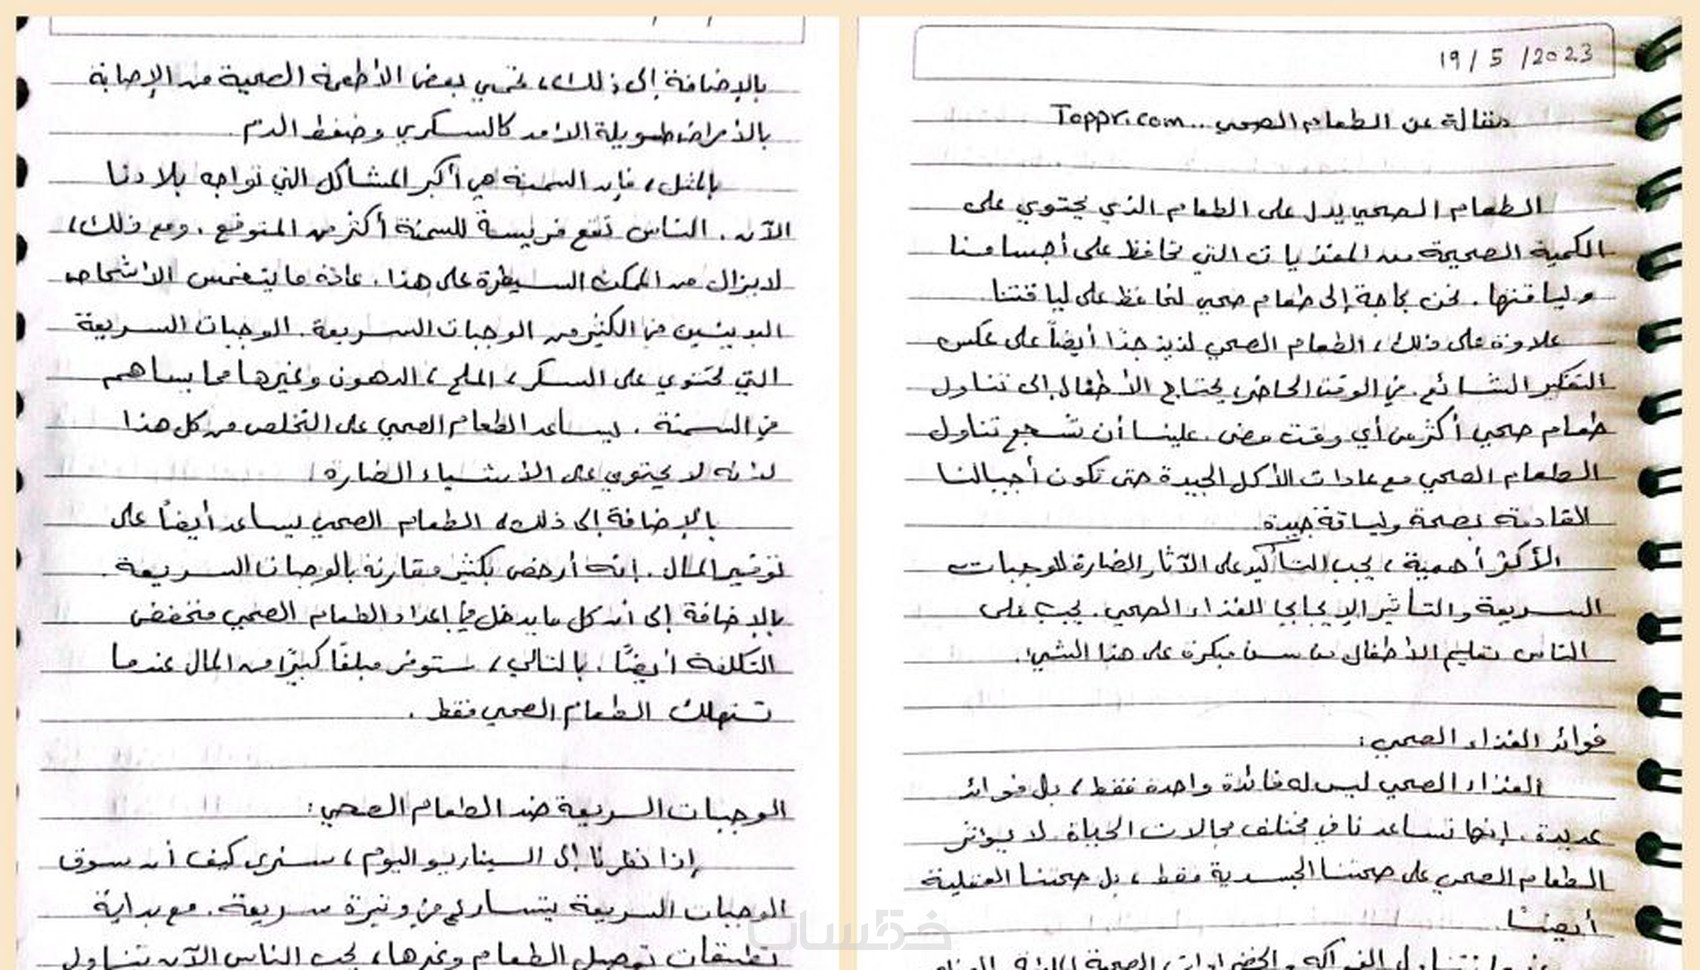 19/5/2023
مقالة عن الطعام الصحي... Toppr.com
الطعام الصحي يدل على الطعام الذي يحتوي على
الكمية الصحيحة من المغذيات التي تحافظ على أجسامنا
ولياقتها. نحن بحاجة إلى طعام صحي لنحافظ على لياقتنا.
علاوة على ذلك، الطعام الصحي لذيذ جدًا أيضاً على عكس
التفكير الشائع. في الوقت الحاضر يحتاج الأطفال إلى تناول
طعام صحي أكثر من أي وقت مضى. علينا أن نشجع تناول
الطعام الصحي مع عادات الأكل الجيدة حتى تكون أجيالنا
القادمة بصحة ولياقة جيدة.
الأكثر أهمية، يجب التأكيد على الآثار الضارة للوجبات
السريعة والتأثير الإيجابي للغذاء الصحي. يجب على
الناس تعليم الأطفال من سن مبكرة على هذا الشيء.
فوائد الغذاء الصحي:
الغذاء الصحي ليس له فائدة واحدة فقط، بل فوائد
عديدة. إنها تساعدنا في مختلف مجالات الحياة. لا يؤثر
الطعام الصحي على صحتنا الجسدية فقط، بل صحتنا العقلية
أيضًا.
نتناول الفواكه والخضراوات الصحية
بالإضافة إلى ذلك، تحمي بعض الأطعمة الصحية من الإصابة
بالأمراض طويلة الأمد كالسكري وضغط الدم.
بالمثل، فإن السمنة هي أكبر المشاكل التي تواجه بلادنا
الآن. الناس تقع فريسة للسمنة أكثر من المتوقع. ومع ذلك،
لا يزال من الممكن السيطرة على هذا. عادة ما يتغمس الأشخاص
البدينين في الكثير من الوجبات السريعة. الوجبات السريعة
التي تحتوي على السكر، الملح، الدهون وغيرها مما يساهم
في السمنة. يساعد الطعام الصحي على التخلص من كل هذا
لأنه لا يحتوي على الأشياء الضارة.
بالإضافة إلى ذلك، الطعام الصحي يساعد أيضاً على
توفير المال. إنه أرخص بكثير مقارنة بالوجبات السريعة.
بالإضافة إلى أن كل ما يدخل في إعداد الطعام الصحي منخفض
التكلفة أيضًا. بالتالي، ستوفر مبلغًا كبيرًا من المال عندما
تستهلك الطعام الصحي فقط.
الوجبات السريعة ضد الطعام الصحي:
إذا نظرنا إلى السيناريو اليوم، سنرى كيف أن سوق
الوجبات السريعة يتسارع في وتيرة سريعة. مع بداية
تطبيقات توصيل الطعام وغيرها، يحب الناس الآن تناول
خمسات